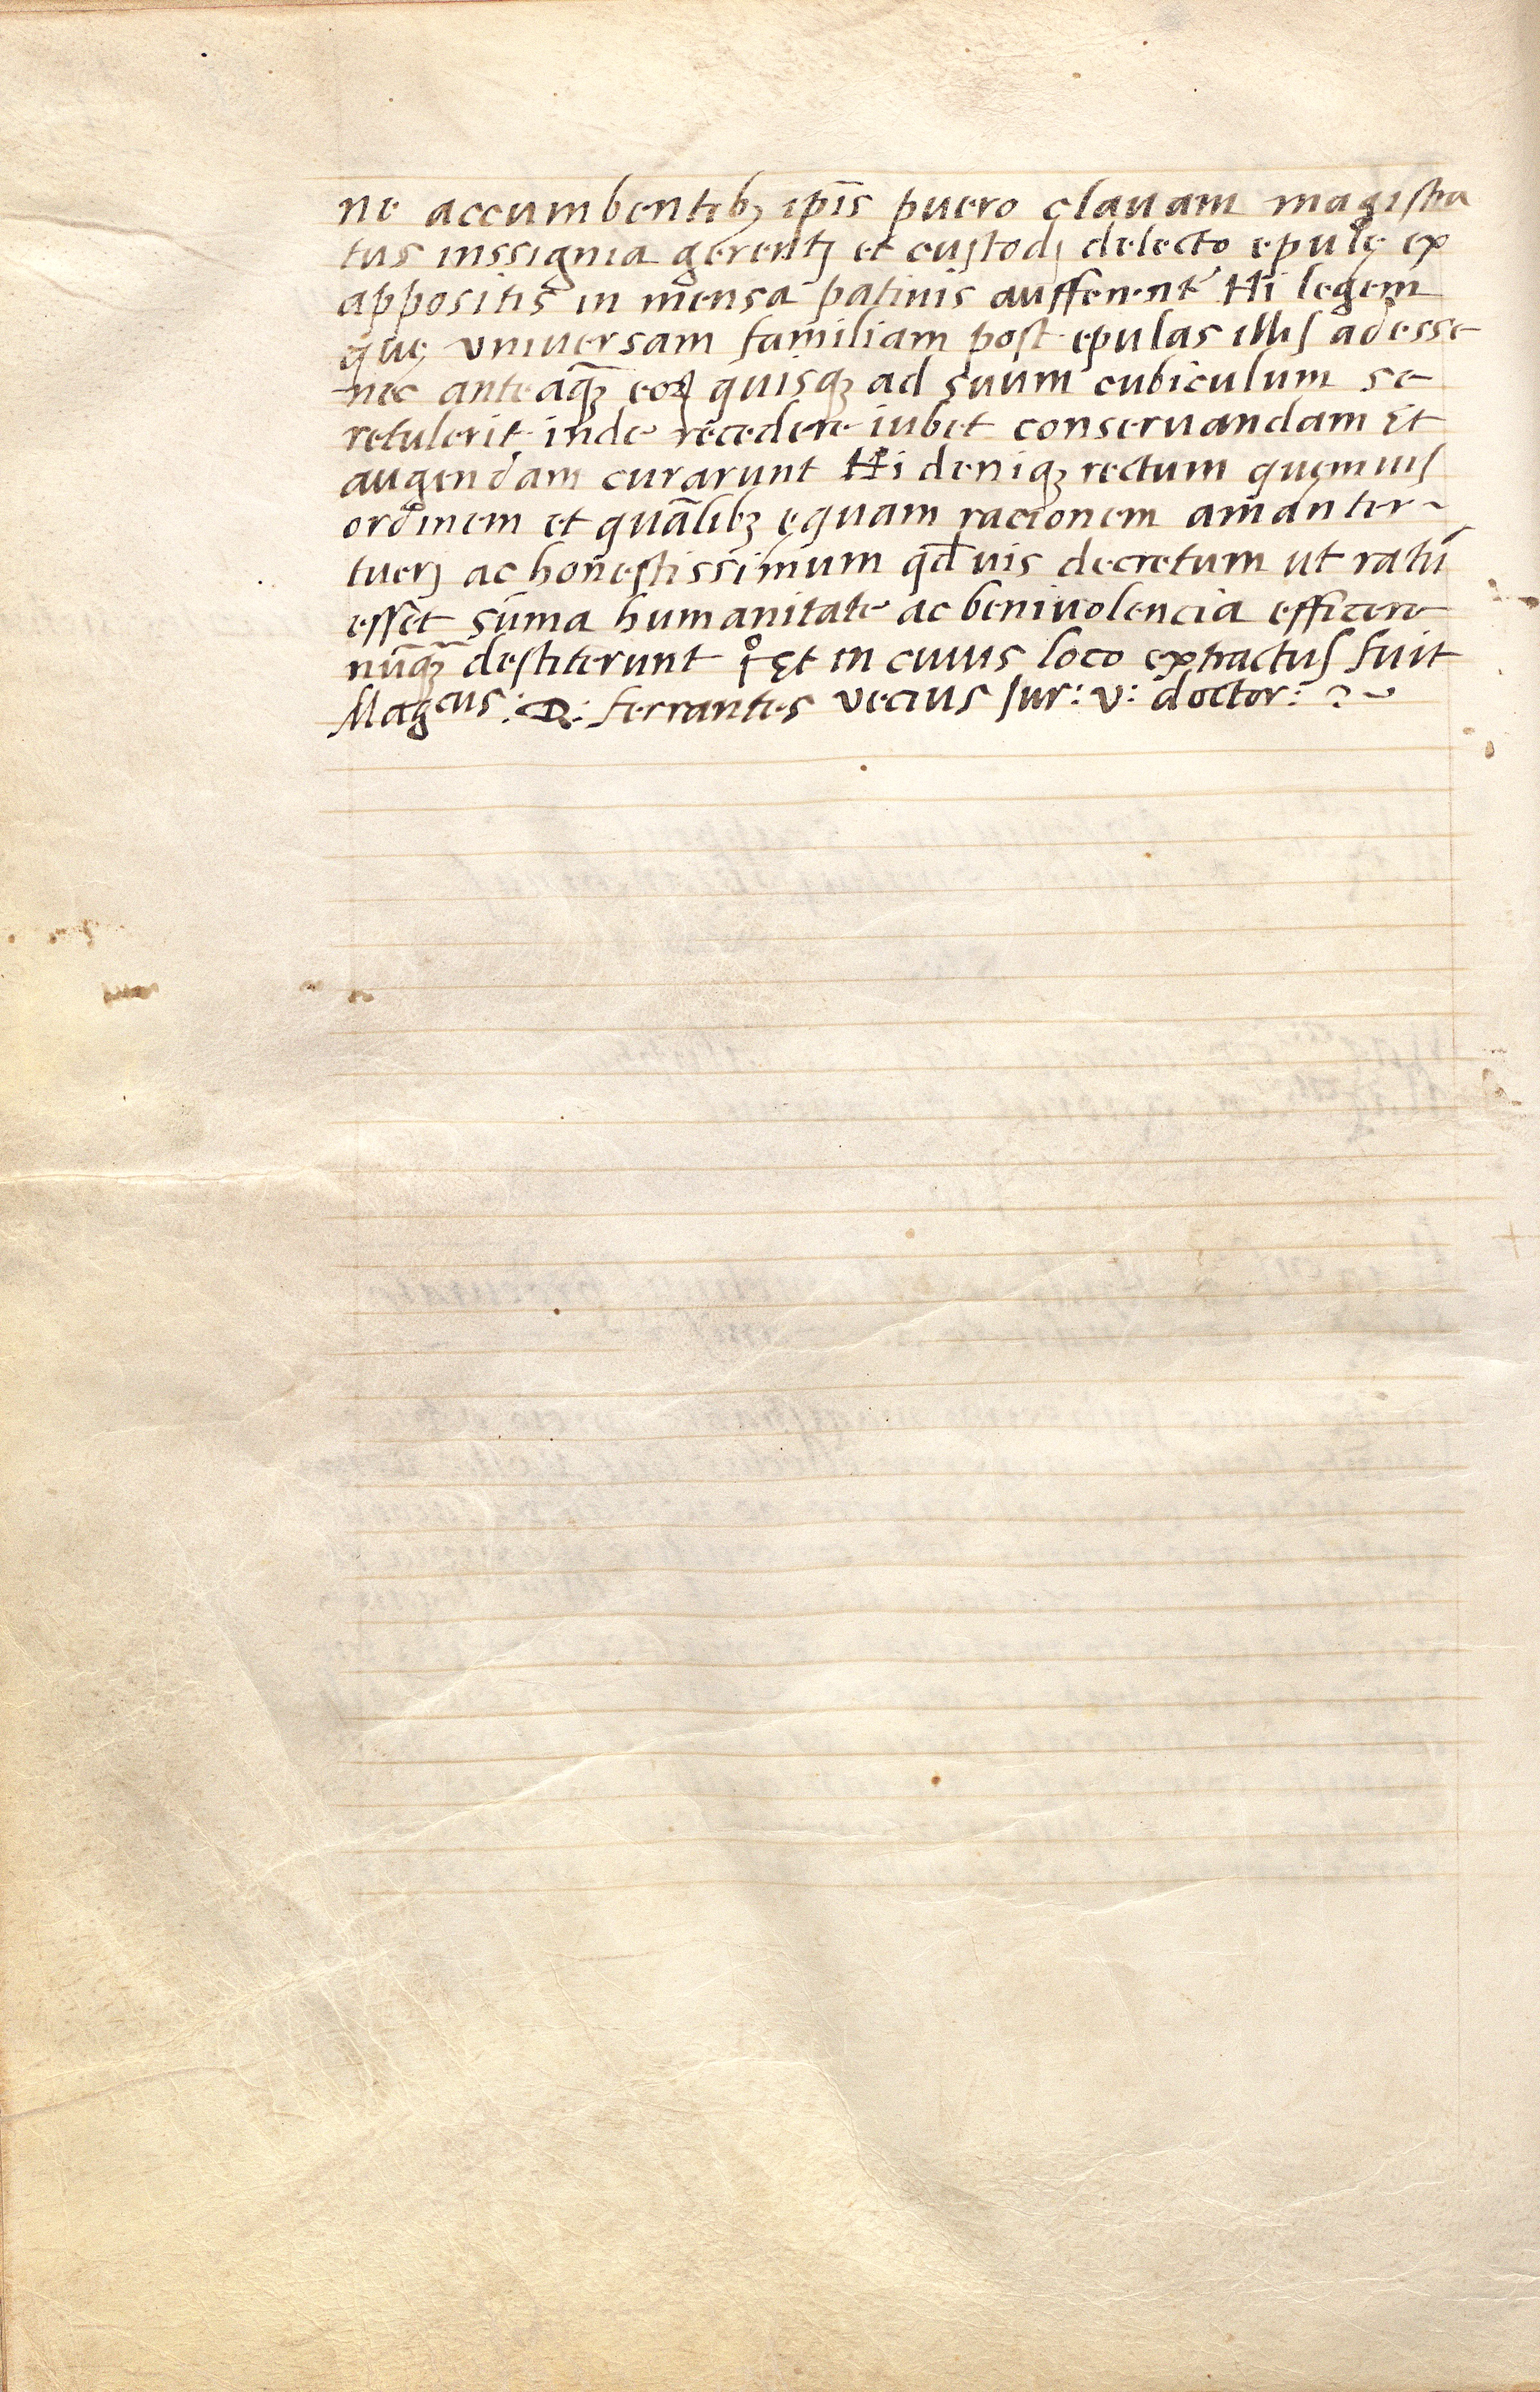 ne accumbentibꝫ ip̄is puero clauam magiſtra
tus inssignia gerentj et cuſtodj delecto epulę ex
appositis in mensa patinis aufferent̛ Hi legem
quę vniuersam familiam poſt epulas illiſ adesse
nec anteaꝗ̄ꝫ eoꝝ quisqꝫ ad suum cubiculum se
retulerit inde recedere iubet conseruandam Et
augendam curarunt Hi deniqꝫ rectum quemuiſ
ordinem et quālibꝫ ęquam racionem amanter
tuerj ac honeſtissimum qđuis decretum ut ratū
eſſet sūma humanitate ac beniuolencia efficere
nūqꝫ deſtiterunt Et in cuius loco extractuſ fuit
Mag^cus: D: ferrantes vecius Iur: v: doctor: